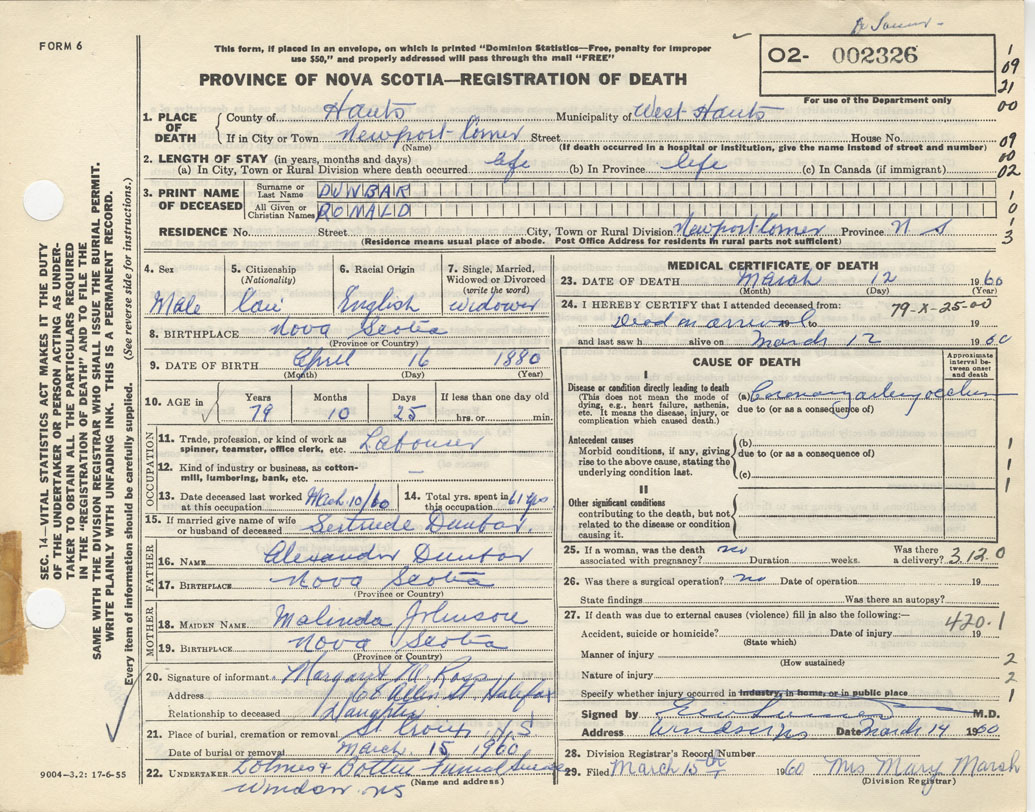 FORM 6
This form, if placed in an envelope, on which is printed "Dominion Statistics—Free, penalty for improper
use $50," and properly addressed will pass through the mail "FREE"
PROVINCE OF NOVA SCOTIA—REGISTRATION OF DEATH
O2- 002326
For use of the Department only
1 09 21 00
09 00 02
1 0 1 3
SEC. 14—VITAL STATISTICS ACT MAKES IT THE DUTY
OF THE UNDERTAKER OR PERSON ACTING AS UNDER-
TAKER TO OBTAIN ALL THE PARTICULARS REQUIRED
IN THE "REGISTRATION OF DEATH" AND TO FILE THE
SAME WITH THE DIVISION REGISTRAR WHO SHALL ISSUE THE BURIAL PERMIT.
WRITE PLAINLY WITH UNFADING INK. THIS IS A PERMANENT RECORD.
Every item of information should be carefully supplied. (See reverse side for instructions.)
1. PLACE OF DEATH
County of Hants Municipality of West Hants
If in City or Town Newport Corner Street House No.
(Name) (If death occurred in a hospital or institution, give the name instead of street and number)
2. LENGTH OF STAY (in years, months and days)
(a) In City, Town or Rural Division where death occurred life (b) In Province life (c) In Canada (if immigrant)
3. PRINT NAME OF DECEASED
Surname or Last Name DUNBAR
All Given or Christian Names ROMALD
RESIDENCE No. Street City, Town or Rural Division Newport Corner Province N S
(Residence means usual place of abode. Post Office Address for residents in rural parts not sufficient)
4. Sex Male
5. Citizenship (Nationality) Can
6. Racial Origin English
7. Single, Married, Widowed or Divorced (write the word) widower
8. BIRTHPLACE Nova Scotia
(Province or Country)
9. DATE OF BIRTH April 16 1880
(Month) (Day) (Year)
10. AGE in Years 79 Months 10 Days 25 If less than one day old hrs. or min.
OCCUPATION
11. Trade, profession, or kind of work as spinner, teamster, office clerk, etc. Labourer
12. Kind of industry or business, as cotton-mill, lumbering, bank, etc. —
13. Date deceased last worked at this occupation Mch 10/60
14. Total yrs. spent in this occupation 61 yrs
15. If married give name of wife or husband of deceased Gertrude Dunbar
FATHER
16. NAME Alexander Dunbar
17. BIRTHPLACE Nova Scotia
(Province or Country)
MOTHER
18. MAIDEN NAME Malinda Johnson
19. BIRTHPLACE Nova Scotia
(Province or Country)
20. Signature of informant Margaret M Ross
Address 168 Allen St Halifax
Relationship to deceased Daughter
21. Place of burial, cremation or removal St Croix N S
Date of burial or removal March 15 1960
22. UNDERTAKER Funeral Service
(Name and address)
Windsor NS
MEDICAL CERTIFICATE OF DEATH
23. DATE OF DEATH March 12 1960
(Month) (Day) (Year)
24. I HEREBY CERTIFY that I attended deceased from: 79-X-25-00
Dead on arrival to 19
and last saw h alive on March 12 1960
CAUSE OF DEATH
Approximate interval between onset and death
I
Disease or condition directly leading to death
(This does not mean the mode of dying, e.g., heart failure, asthenia, etc. It means the disease, injury, or complication which caused death.)
(a) Coronary artery occlusion
due to (or as a consequence of)
Antecedent causes
Morbid conditions, if any, giving rise to the above cause, stating the underlying condition last.
(b)
due to (or as a consequence of)
(c)
1 1 1
II
Other significant conditions
contributing to the death, but not related to the disease or condition causing it.
25. If a woman, was the death associated with pregnancy? no Duration weeks. Was there a delivery? 3120
26. Was there a surgical operation? no Date of operation 19
State findings Was there an autopsy?
27. If death was due to external causes (violence) fill in also the following:— 420.1
Accident, suicide or homicide? Date of injury 19
(State which)
Manner of injury 2
(How sustained)
Nature of injury 2
Specify whether injury occurred in industry, in home, or in public place 1
Signed by M.D.
Address Windsor NS Date March 14 1960
28. Division Registrar's Record Number
29. Filed March 15th 1960 Mrs Mary Marsh
(Division Registrar)
9004-3.2: 17-6-55